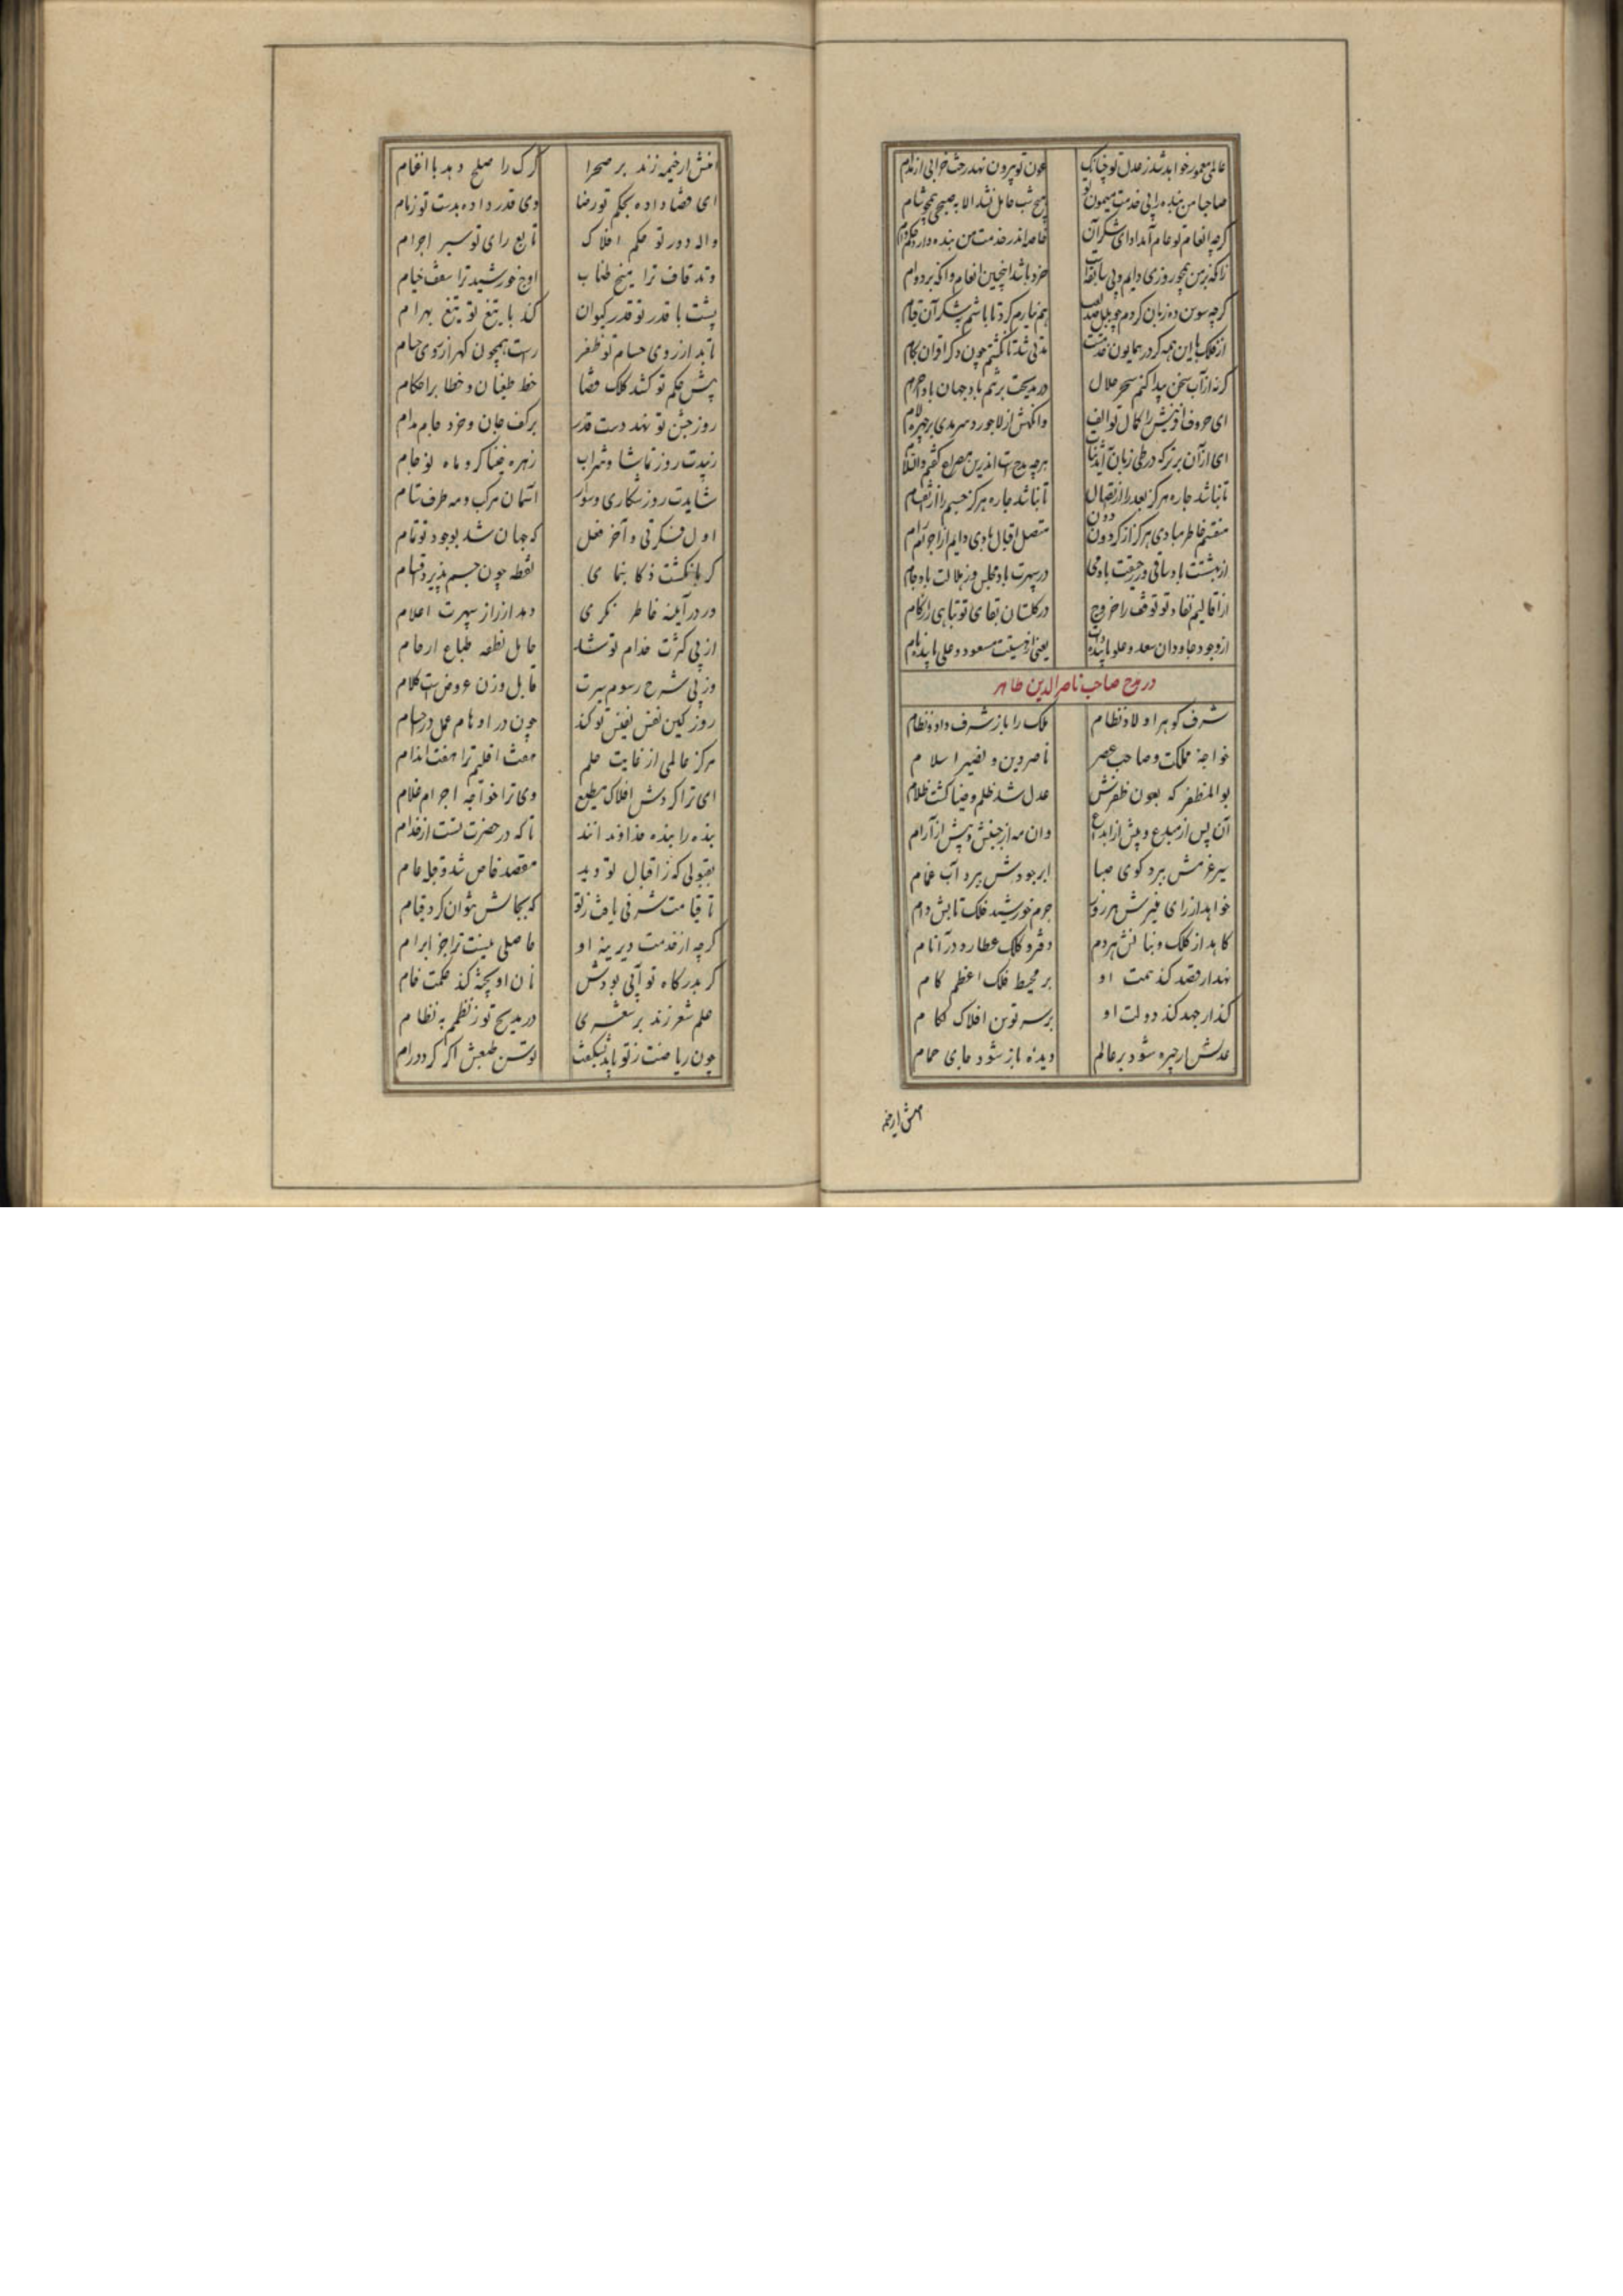 عالمی معمور خواهد شد ز عدل تو چنانک عون تو بیرون نهد رخت خرابی از
صاحبا من بنده را پی خدمت میمون تو هیچ شب حامل نشد الا به صبحی همچو شام
گرچه انعام تو عام آمد ادای شکر آن خاصه اندر خدمت من بنده دارد حکم
زانکه بر من همچو روزی دایم و بی سابقت خود باشد اینچنین انعام وانگه بر دوام
گرچه سوسن ده زبان کردم چو بلبل صد هم نیارم کرد تا باشم بشکر آن قیام
از فلک با این همه کز در همایون خدمتت مدتی شد تا نگشتم چون دگر اقران بکام
گر نه از آب سخن پیدا کنم سحر حلال در مدیحت بر تنم بادا جهان باد حرام
ای حروف آفرینش را کمال تو الف وانگهش از لاجورد سرمدی بر چهره لام
ای از آن برتر که در طی زبان آید ثنات هرچه مدحست اندرین مصراع گفتم والسلام
تا نباشد چاره هرگز بعد را از اتصال تا نباشد چاره هرگز جسم را از انقسام
منقسم خاطر مبادی هرگز از گردون دون متصل اقبال بادی دایم از اجرام رام
از بهشتت باد ساقی وز رحیقت باد می در سپهرت باد مجلس وز هلالت باد جام
از اقالیم نفاد تو توقف را خروج در گلستان بقای تو تباهی را زکام
از وجود جاودان سعد و علو پاینده یعنی از سیرت مسعود و علی پاینده نام
در مدح صاحب ناصر الدین طاهر
شرف گوهر اولاد نظام ملک را باز شرف داد و نظام
خواجه مملکت و صاحب عصر ناصر دین و نصیر اسلام
بو المظفر که بعون ظفرش عدل شد ظلم و ضیا گشت ظلام
آن پس از مبدع و پیش از ابداع وان مه از جنبش و بیش از آرام
سیر عزمش ببرد گوی صبا ابر جودش ببرد آب غمام
خواهد از رای منیرش هر روز جرم خورشید فلک تابش وام
کاهد از کلک و بنانش هر دم دفتر و کلک عطارد در آنام
نهد ار قصد کند همت او بر محیط فلک اعظم گام
کند ار جهد کند دولت او بر سر توسن افلاک لگام
عدلش ار چیره شود بر عالم دیده باز شود جای حمام
امنش ار خیمه
امنش ار خیمه زند بر صحرا گرگ را صلح دهد با اغنام
ای قضا داده بحکم تو رضا وی قدر داده بدست تو زمام
واله دور تو حکم افلاک تابع رای تو سیر اجرام
وتد قاف ترا میخ طناب اوج خورشید ترا سقف خیام
پست با قدر تو قدر کیوان کند با تیغ تو تیغ بهرام
تابد از روی حسام تو ظفر راست همچون گهر از روی حسام
پیش حکم تو کشد کلک قضا خط طغیان و خطا بر احکام
روز جشن تو نهد دست قدر بر کف جان و خرد جام مدام
زیبدت روز تماشا و شراب زهره خنیاگر و ماه نو جام
شایدت روز شکاری و سوار آسمان مرکب و مه طرف ستام
اول فکرتی و آخر فعل که جهان شد بوجود تو تمام
گر بانگشت ذکا بنمای نقطه چون جسم پذیرد اقسام
ور در آینه خاطر نگری دهد از راز سپهرت اعلام
از پی کثرت خدام تو شد حامل نطفه طباع ارحام
وز پی شرح رسوم سیرت قابل وزن عروض است کلام
روز کین نفس نفیس تو کند چون در اوهام عمل در اجسام
مرکز عالمی از غایت حلم هفت اقلیم ترا هفت اندام
ای ترا گردش افلاک مطیع وی ترا خواجه اجرام غلام
بنده را بنده خداوندانند تا که در حضرت تست از خدام
بقبولی که ز اقبال تو دید مقصد خاص شد و قبله عام
تا قیامت شرفی یافت ز تو که بجالش نتوان کرد قیام
گرچه از خدمت دیرینه او حاصلی نیست ترا جز ابرام
گر بدرگاه تو آبی بودش نان او پخته کند حکمت خام
علم شعر زند بر شعری در مدیح تو ز نظمم به نظام
چون ریاضت ز تو یابد نشگفت توسن طبعش اگر گردد رام